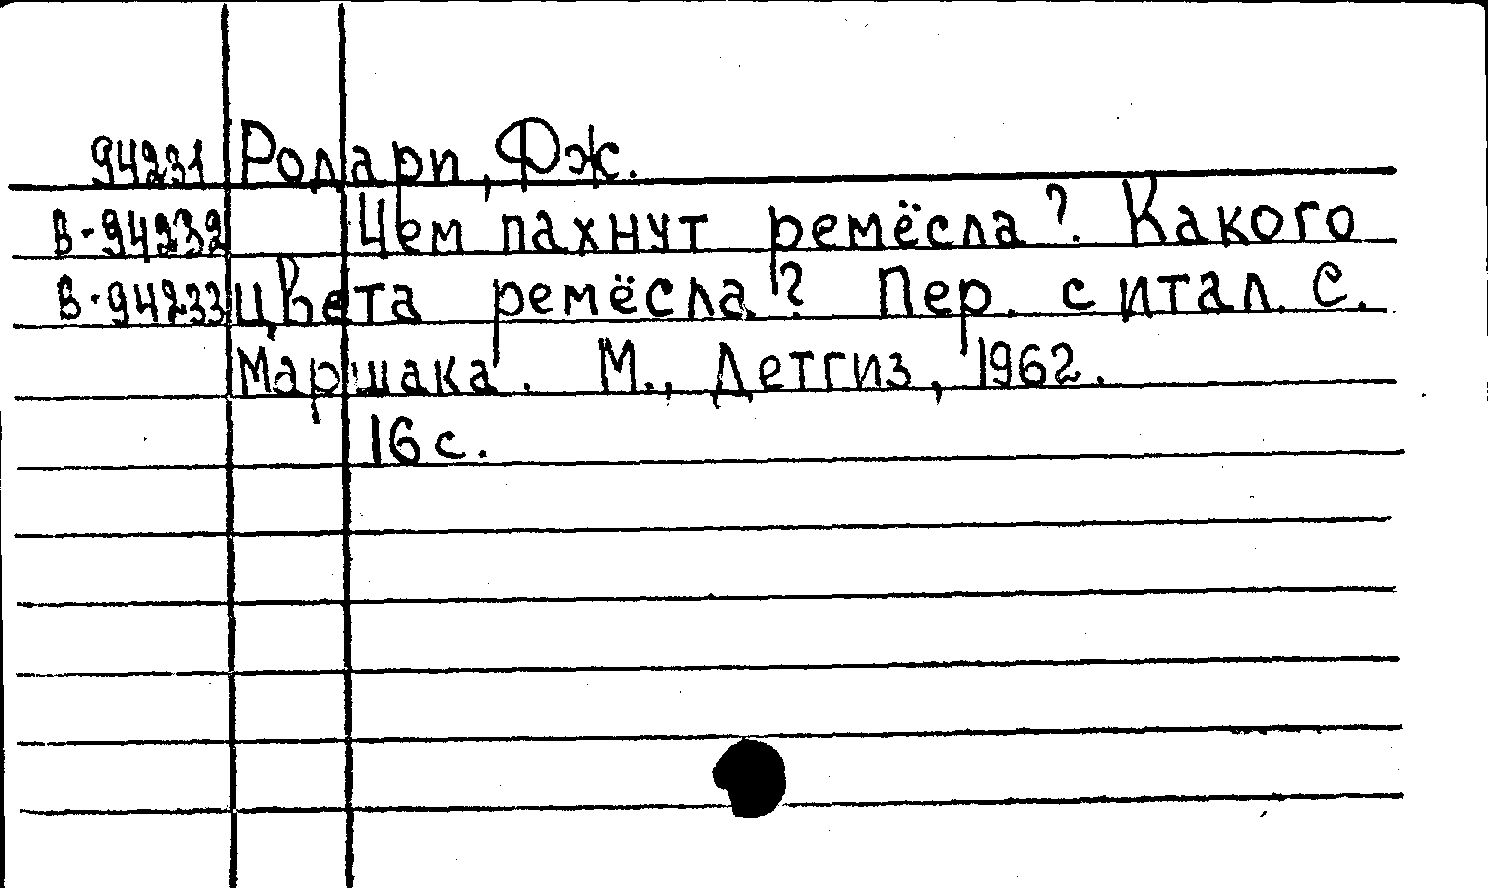 94231 Родари, Дж.
В-94232 Чем пахнут ремёсла? Какого
В-94233 цвета ремёсла? Пер. с итал. С.
Маршака. М., Детгиз, 1962.
16 с.